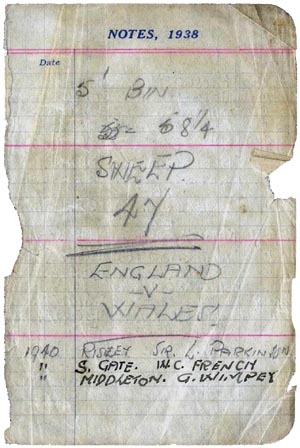 NOTES, 1938
Date
5' BIN
= 68 1/4
SWEEP.
47
ENGLAND
-V-
WALES
1940 RISLEY SIR. L. PARKINSON
" S. GATE. W.C. FRENCH
" MIDDLETON. G. WIMPEY